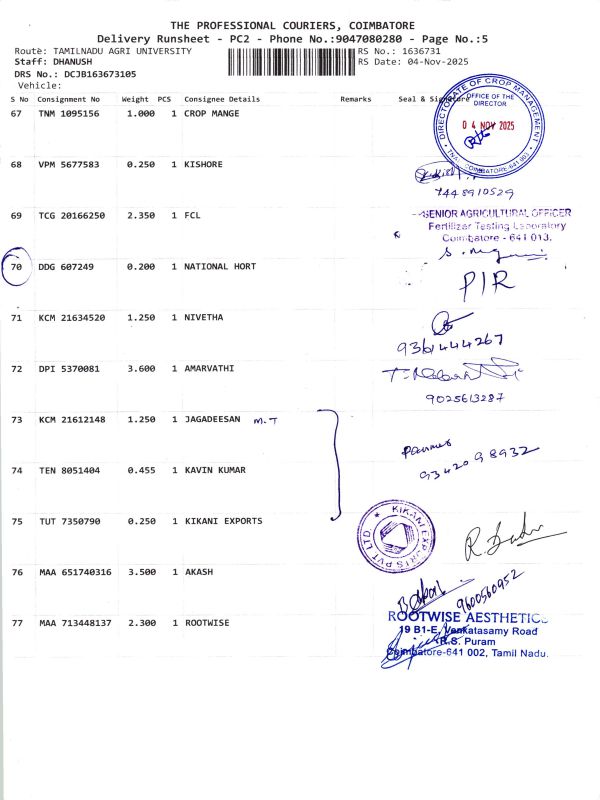 THE PROFESSIONAL COURIERS, COIMBATORE
Delivery Runsheet - PC2 - Phone No.:9047080280 - Page No.:5
Route: TAMILNADU AGRI UNIVERSITY RS No.: 1636731
Staff: DHANUSH RS Date: 04-Nov-2025
DRS No.: DCJB163673105
Vehicle:
S No Consignment No Weight PCS Consignee Details Remarks Seal & Signature
DIRECTORATE OF CROP MANAGEMENT
OFFICE OF THE
DIRECTOR
04 NOV 2025
COIMBATORE-641 003
67 TNM 1095156 1.000 1 CROP MANGE
68 VPM 5677583 0.250 1 KISHORE
7448910529
69 TCG 20166250 2.350 1 FCL
SENIOR AGRICULTURAL OFFICER
Fertilizer Testing Laboratory
Coimbatore - 641 013.
70 DDG 607249 0.200 1 NATIONAL HORT
PIR
71 KCM 21634520 1.250 1 NIVETHA
9361444267
72 DPI 5370081 3.600 1 AMARVATHI
9025613287
73 KCM 21612148 1.250 1 JAGADEESAN M.T
74 TEN 8051404 0.455 1 KAVIN KUMAR
93420 98932
75 TUT 7350790 0.250 1 KIKANI EXPORTS
KIKANI EXPORTS PVT LTD
76 MAA 651740316 3.500 1 AKASH
9600560952
77 MAA 713448137 2.300 1 ROOTWISE
ROOTWISE AESTHETICS
19 B1-E, Venkatasamy Road
R.S. Puram
Coimbatore-641 002, Tamil Nadu.